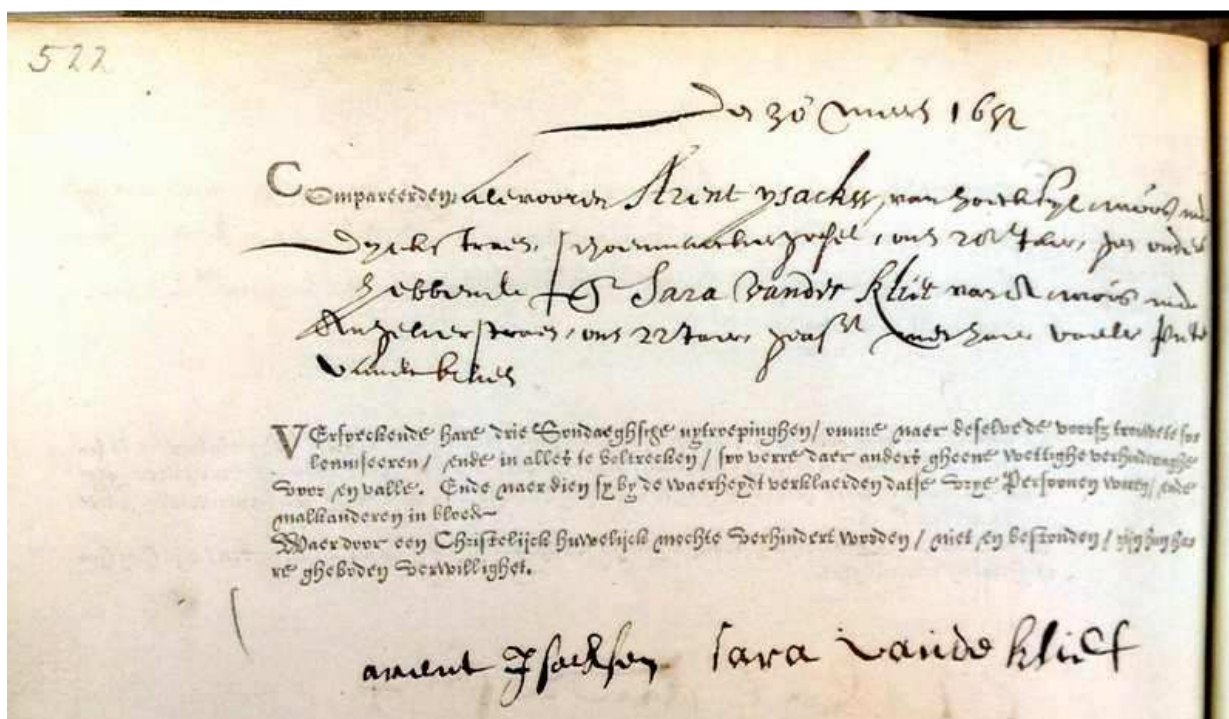 522
Den 30 Meert 1652
COmpareerden als vooren Arent ysacksz, van woont inde
Dyckstraet, schoenmakersgesel, out 28 Jaer, geen ouders
hebbende & Sara vander kliet van A woont inde
Angelierstraet, out 22 Jaer, geasst met haer vader Pieter
vander kliet
VErsoeckende hare drie Sondaeghsche uytroepinghen / omme naer deselve de voorsz trouwe te so-
lemniseeren / ende in alles te voltrecken / soo verre daer anders gheene wettighe verhinderinghe
voor en valle. Ende naer dien sy by de waerheydt verklaerden datse vrye Persoonen waren / ende
malkanderen in bloede
Waer door een Christelijck huwelijck mochte verhindert worden / niet en bestonden / zijn hun ha-
re gheboden verwillighet.
arent Isacksen sara vande klief